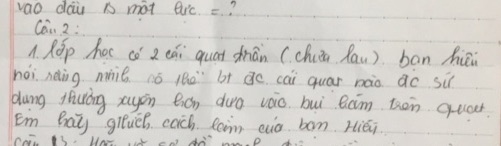 vào dấu là một lực = ?
Câu 2:
1 lớp học có 2 cái quạt trần (chưa lau). bạn hiếu
nói rằng mình có thể bt đc cái quạt nào đc sử
dụng thường xuyên hơn dựa vào bụi bám trên quạt.
Em hãy gthích cách làm của bạn Hiếu